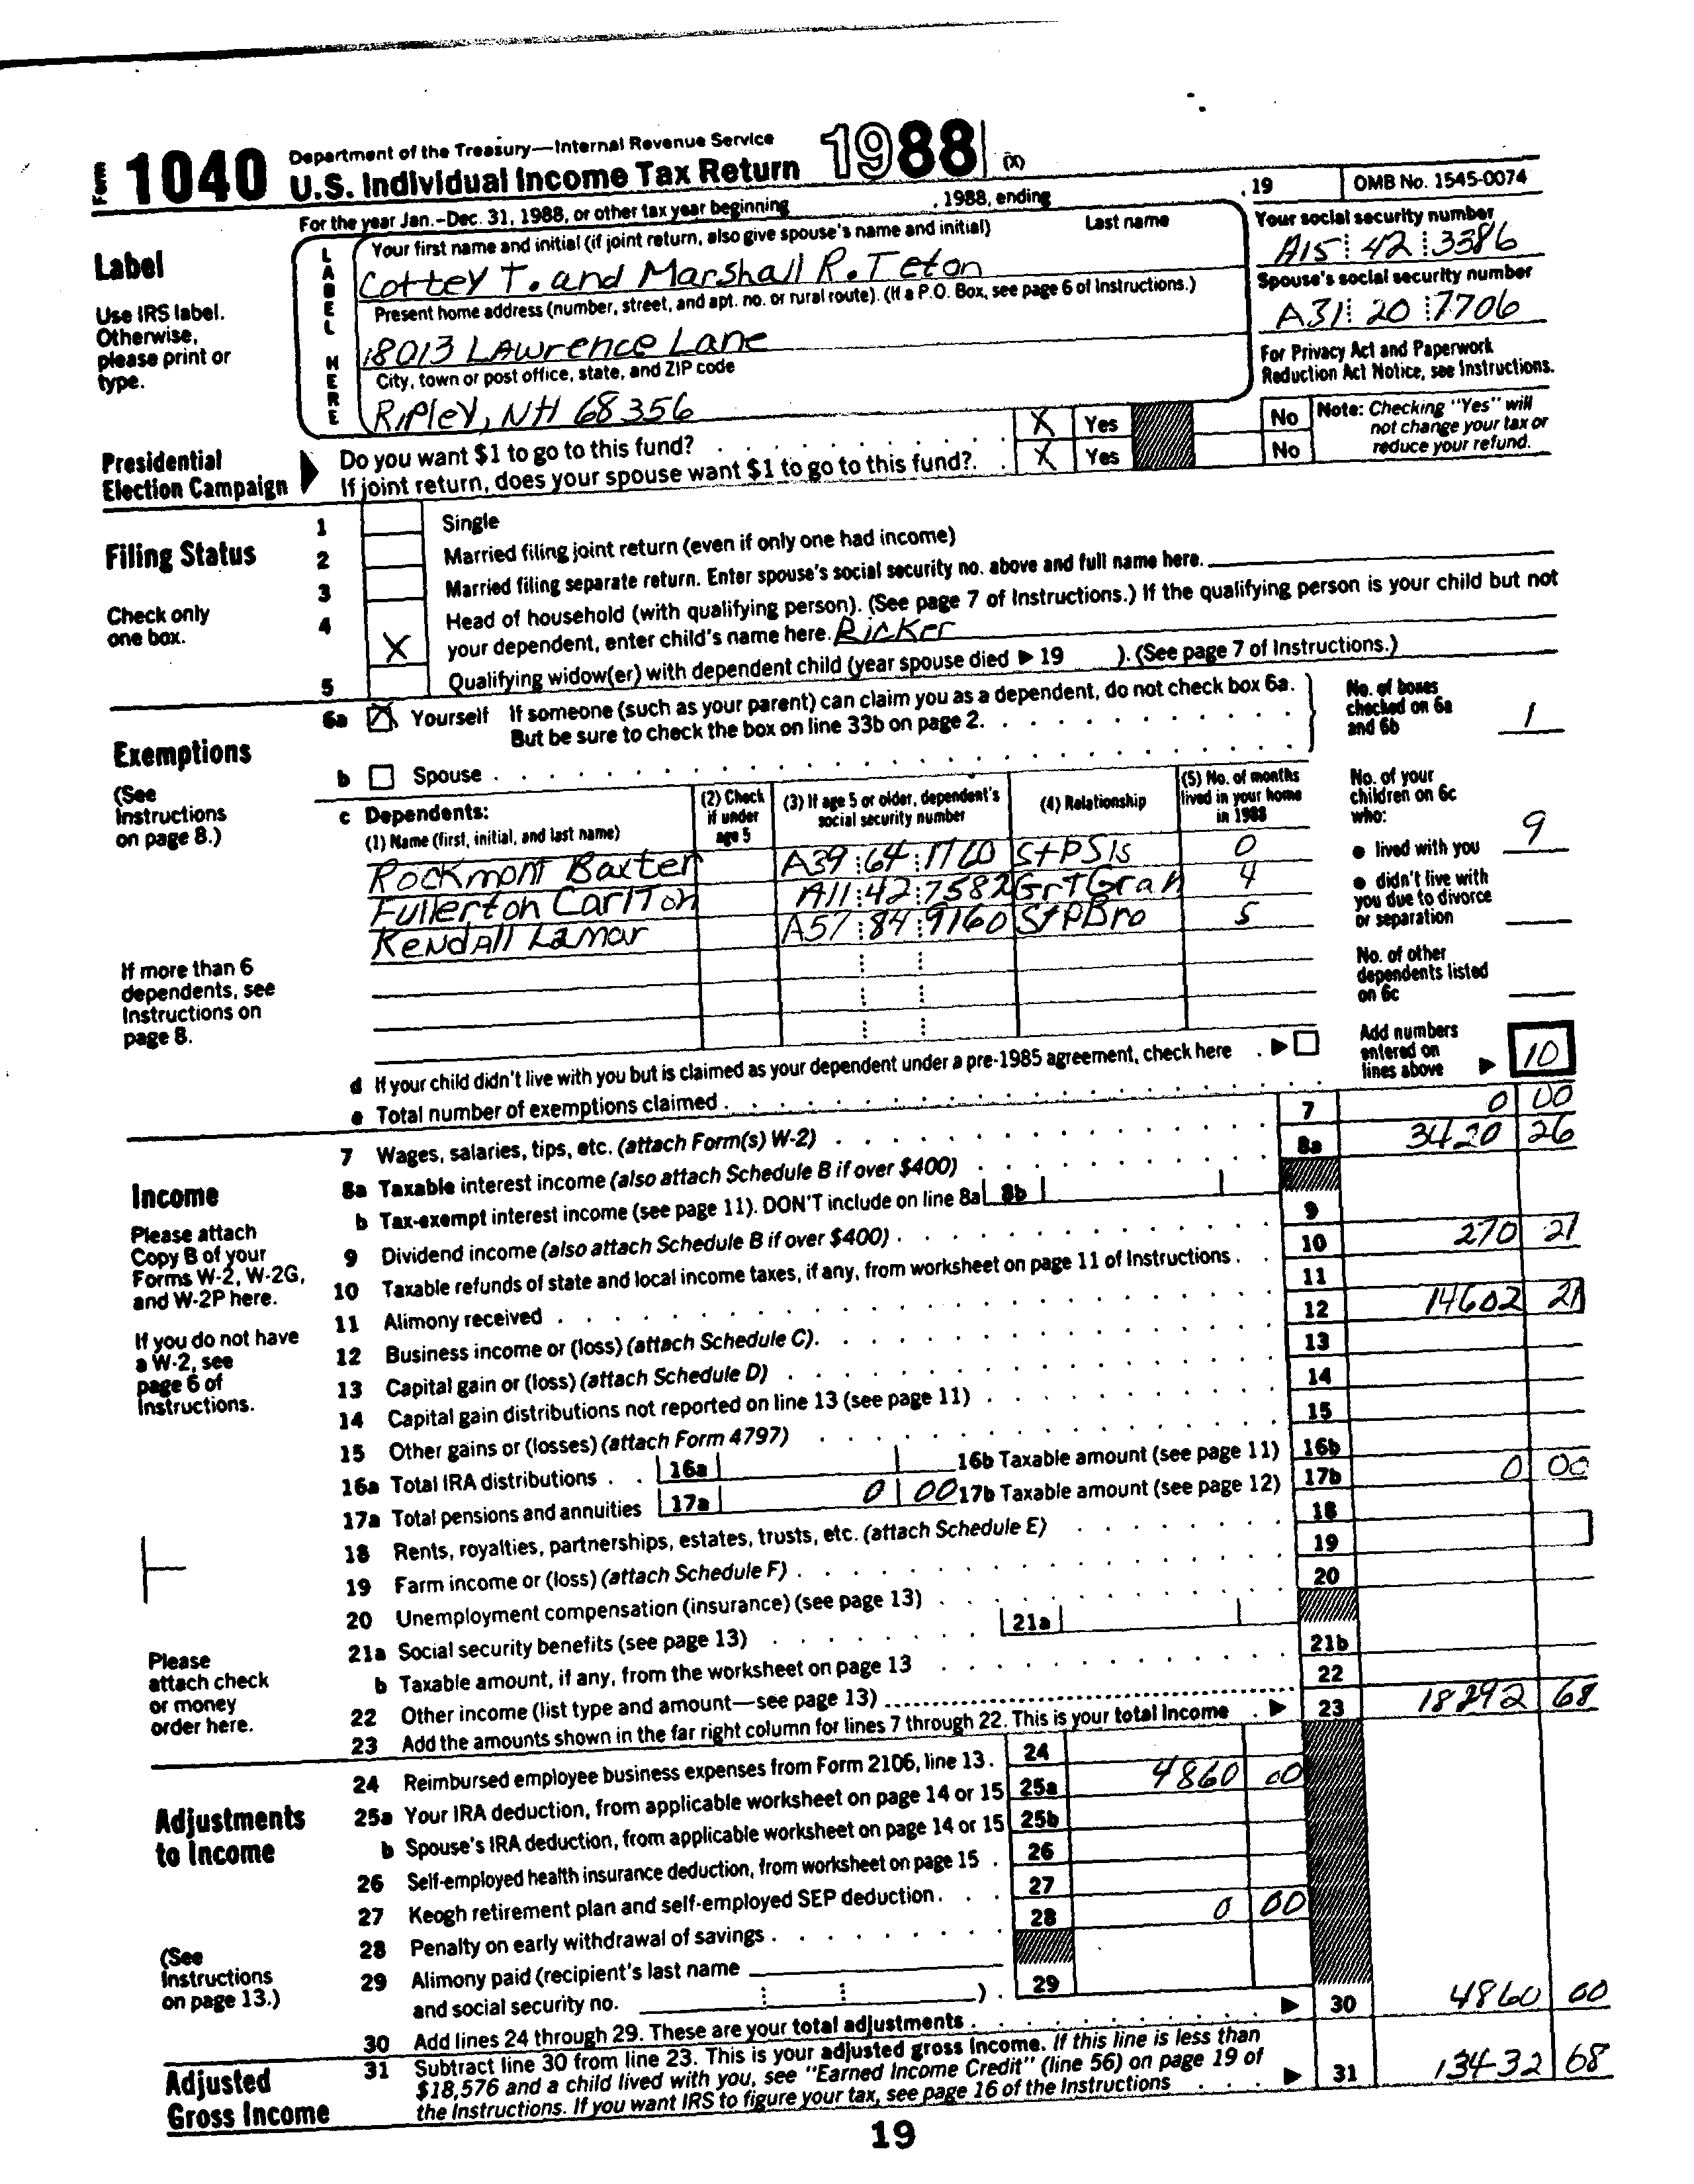 Form 1040 Department of the Treasury—Internal Revenue Service
U.S. Individual Income Tax Return 1988 (X)
For the year Jan.–Dec. 31, 1988, or other tax year beginning , 1988, ending , 19 OMB No. 1545-0074
Label
Use IRS label. Otherwise, please print or type.
LABEL HERE
Your first name and initial (if joint return, also give spouse's name and initial) Last name
Cottey T. and Marshall R. Teton
Your social security number
A15 42 3386
Present home address (number, street, and apt. no. or rural route). (If a P.O. Box, see page 6 of Instructions.)
18013 Lawrence Lane
Spouse's social security number
A31 20 7706
City, town or post office, state, and ZIP code
Ripley, NH 68356
For Privacy Act and Paperwork Reduction Act Notice, see Instructions.
Presidential Election Campaign
Do you want $1 to go to this fund? X Yes No
If joint return, does your spouse want $1 to go to this fund? X Yes No
Note: Checking "Yes" will not change your tax or reduce your refund.
Filing Status
Check only one box.
1 Single
2 Married filing joint return (even if only one had income)
3 Married filing separate return. Enter spouse's social security no. above and full name here.
4 X Head of household (with qualifying person). (See page 7 of Instructions.) If the qualifying person is your child but not
your dependent, enter child's name here. Ricker
5 Qualifying widow(er) with dependent child (year spouse died ▶ 19 ). (See page 7 of Instructions.)
Exemptions
(See Instructions on page 8.)
6a X Yourself If someone (such as your parent) can claim you as a dependent, do not check box 6a.
But be sure to check the box on line 33b on page 2.
b Spouse
No. of boxes checked on 6a and 6b 1
c Dependents:
(1) Name (first, initial, and last name) (2) Check if under age 5 (3) If age 5 or older, dependent's social security number (4) Relationship (5) No. of months lived in your home in 1988
Rockmont Baxter A39 64 1760 StPSis 0
Fullerton Carlton A11 42 7582 GrTGran 4
Kendall Lamar A57 84 9160 StPBro 5
No. of your children on 6c who:
● lived with you 9
● didn't live with you due to divorce or separation
No. of other dependents listed on 6c
If more than 6 dependents, see Instructions on page 8.
d If your child didn't live with you but is claimed as your dependent under a pre-1985 agreement, check here
e Total number of exemptions claimed
Add numbers entered on lines above 10
Income
Please attach Copy B of your Forms W-2, W-2G, and W-2P here.
If you do not have a W-2, see page 6 of Instructions.
Please attach check or money order here.
7 Wages, salaries, tips, etc. (attach Form(s) W-2) 7 0 00
8a Taxable interest income (also attach Schedule B if over $400) 8a 3420 26
b Tax-exempt interest income (see page 11). DON'T include on line 8a 8b
9 Dividend income (also attach Schedule B if over $400) 9
10 Taxable refunds of state and local income taxes, if any, from worksheet on page 11 of Instructions 10 270 21
11 Alimony received 11
12 Business income or (loss) (attach Schedule C) 12 14602 21
13 Capital gain or (loss) (attach Schedule D) 13
14 Capital gain distributions not reported on line 13 (see page 11) 14
15 Other gains or (losses) (attach Form 4797) 15
16a Total IRA distributions 16a 16b Taxable amount (see page 11) 16b
17a Total pensions and annuities 17a 0 00 17b Taxable amount (see page 12) 17b 0 00
18 Rents, royalties, partnerships, estates, trusts, etc. (attach Schedule E) 18
19 Farm income or (loss) (attach Schedule F) 19
20 Unemployment compensation (insurance) (see page 13) 20
21a Social security benefits (see page 13) 21a
b Taxable amount, if any, from the worksheet on page 13 21b
22 Other income (list type and amount—see page 13) 22
23 Add the amounts shown in the far right column for lines 7 through 22. This is your total income ▶ 23 18292 68
Adjustments to Income
(See Instructions on page 13.)
24 Reimbursed employee business expenses from Form 2106, line 13 24
25a Your IRA deduction, from applicable worksheet on page 14 or 15 25a 4860 00
b Spouse's IRA deduction, from applicable worksheet on page 14 or 15 25b
26 Self-employed health insurance deduction, from worksheet on page 15 26
27 Keogh retirement plan and self-employed SEP deduction 27
28 Penalty on early withdrawal of savings 28 0 00
29 Alimony paid (recipient's last name
and social security no. ) 29
30 Add lines 24 through 29. These are your total adjustments ▶ 30 4860 00
Adjusted Gross Income
31 Subtract line 30 from line 23. This is your adjusted gross income. If this line is less than
$18,576 and a child lived with you, see "Earned Income Credit" (line 56) on page 19 of
the Instructions. If you want IRS to figure your tax, see page 16 of the Instructions ▶ 31 13432 68
19